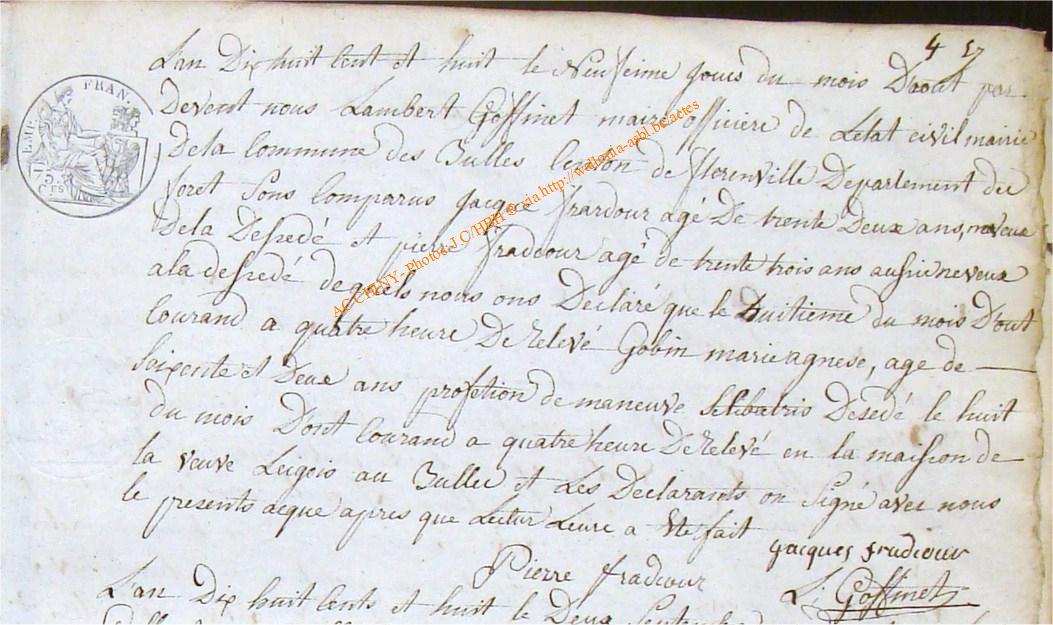 4 57
L'an Dix huit Cent et huit le Neufieme jours du mois D'aout par
Devent nous Lambert Goffinet maire officiere de Letat civil mairie
Dela Commune des Bulles Centon de florenville Departement des
foret Sons Comparus jacque frardour agé De trente Deux ans, neveux
Dela Desedé et pierre fradcour agé de trente trois ans aussi neveux
a la desedé dequels nous ons Declaré que le huitieme du mois D'out
Courand a quatre heure De relevé Gobin marie agnese, age de
Soixente et Deux ans profetion de maneuve Selibatris Desedé le huit
du mois D'out Courand a quatre heure De relevé en la maission de
la veuve Leigois au Bulles et Les Declarants on signé avec nous
le presents acque apres que Lectur Leure a Ete fait
jacques fradcour
Pierre fradcour
L: Goffinet
L'an Dix huit Cents et huit le Deux Septembre
EMP. FRAN.
75
C.ES
ACCHINY - Photos J.C/HBH © via http://wallonia-asbl.be/actes